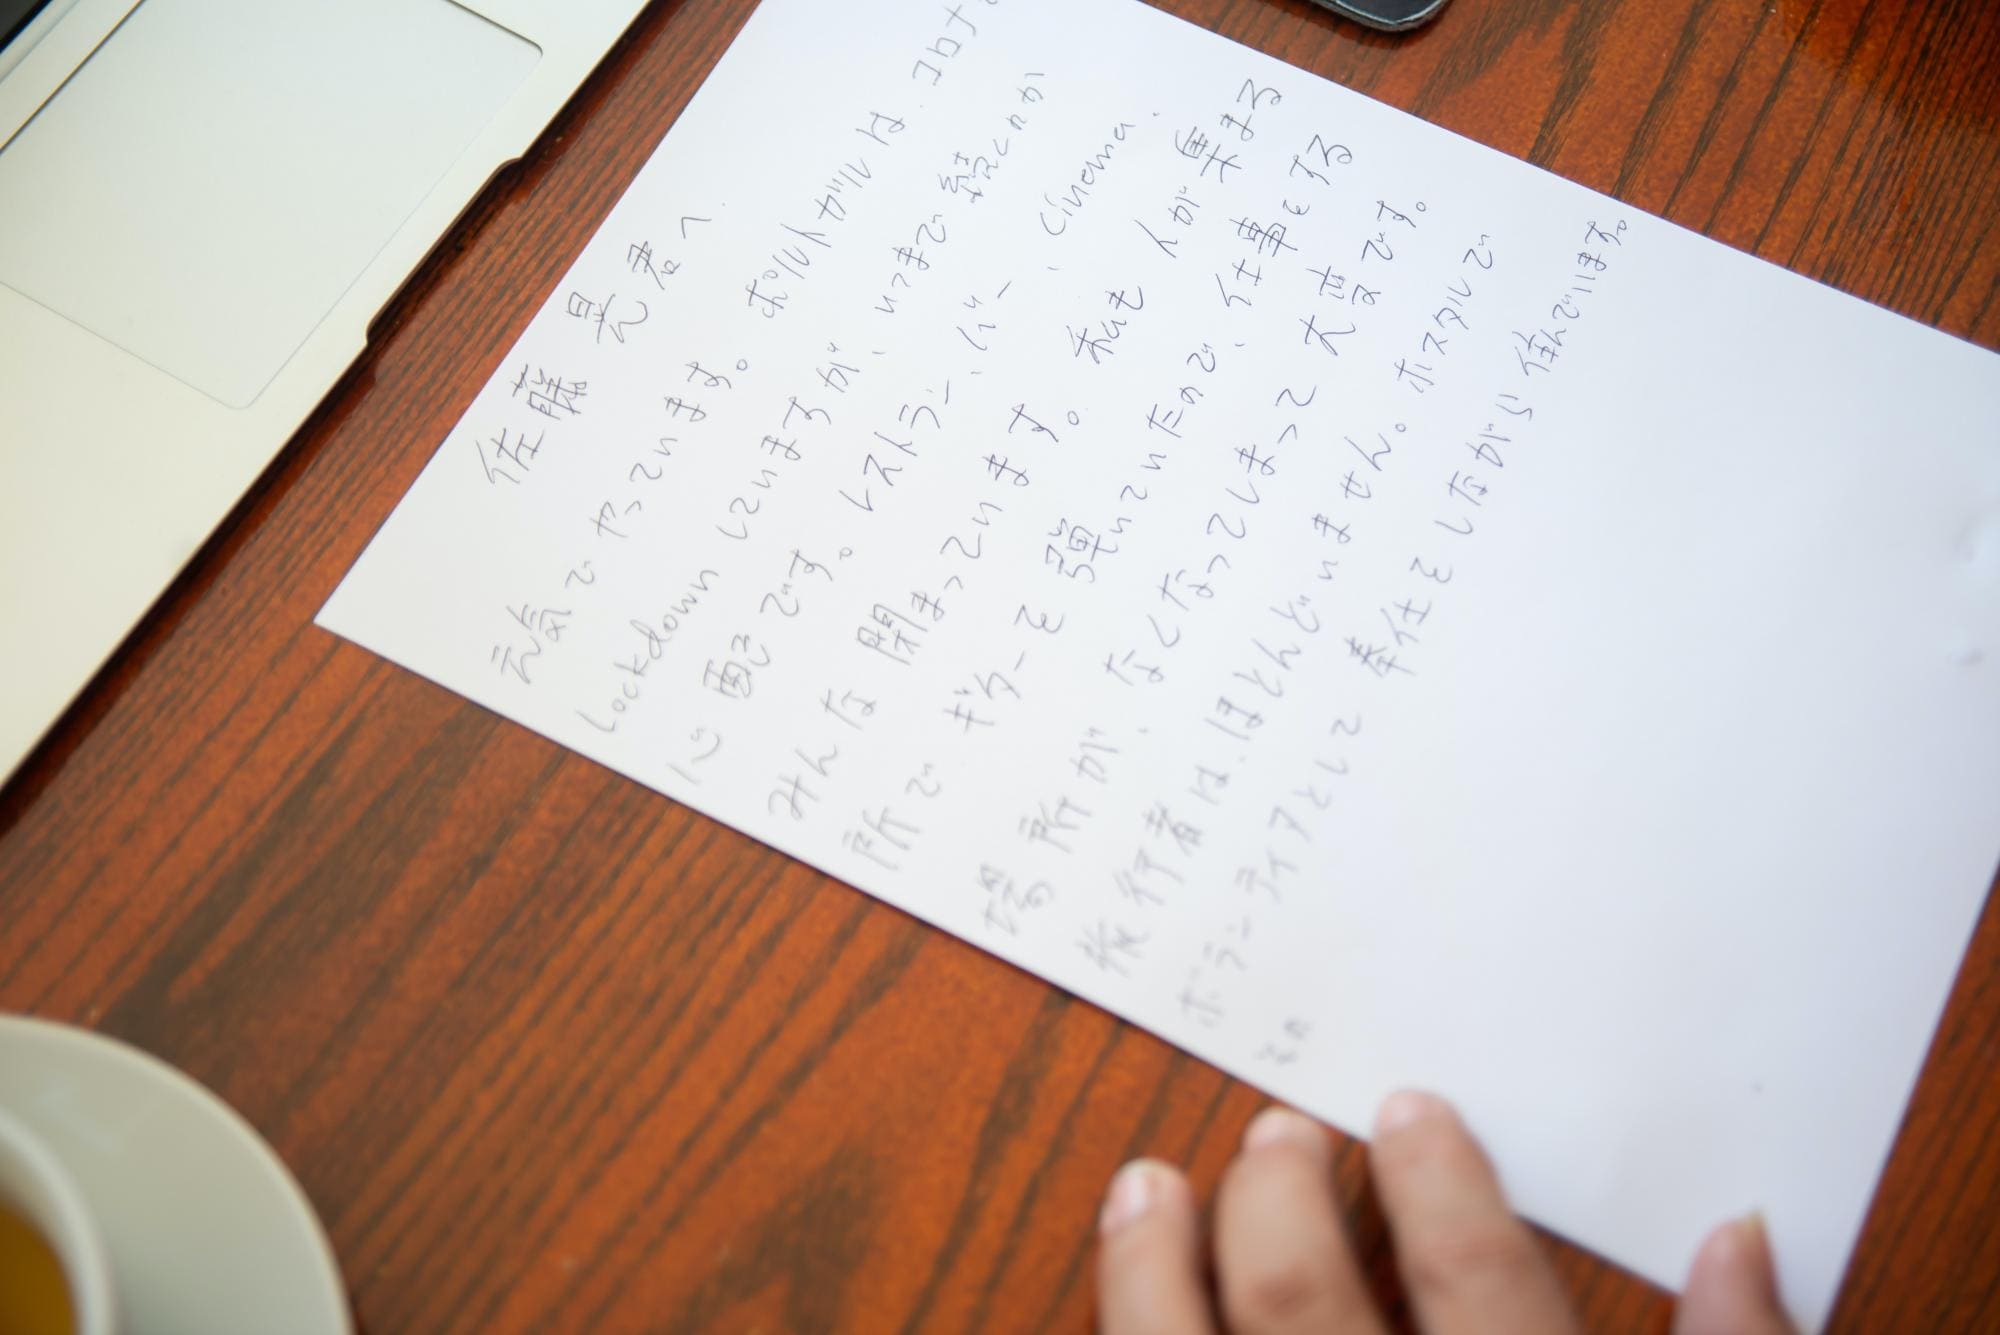 佐藤 晃君へ
元気でやっています。ポルトガルは、コロナで
Lockdownしていますが、いつまで続くのか
心配です。レストラン、バー、cinema、
みんな閉まっています。私も人が集まる
所でギターを弾いていたので、仕事をする
場所が、なくなってしまって大変です。
旅行者は、ほとんどいません。ホスタルで
ボランティアとして奉仕をしながら住んでいます。